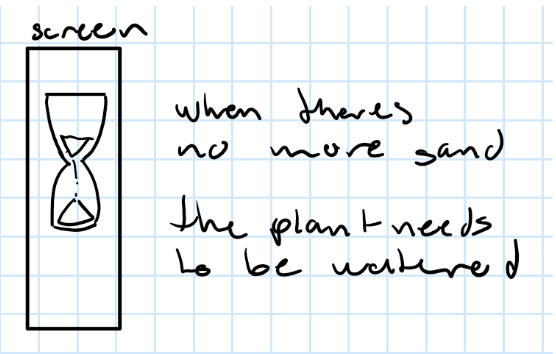 screen
when theres
no more sand
the plant needs
to be watered